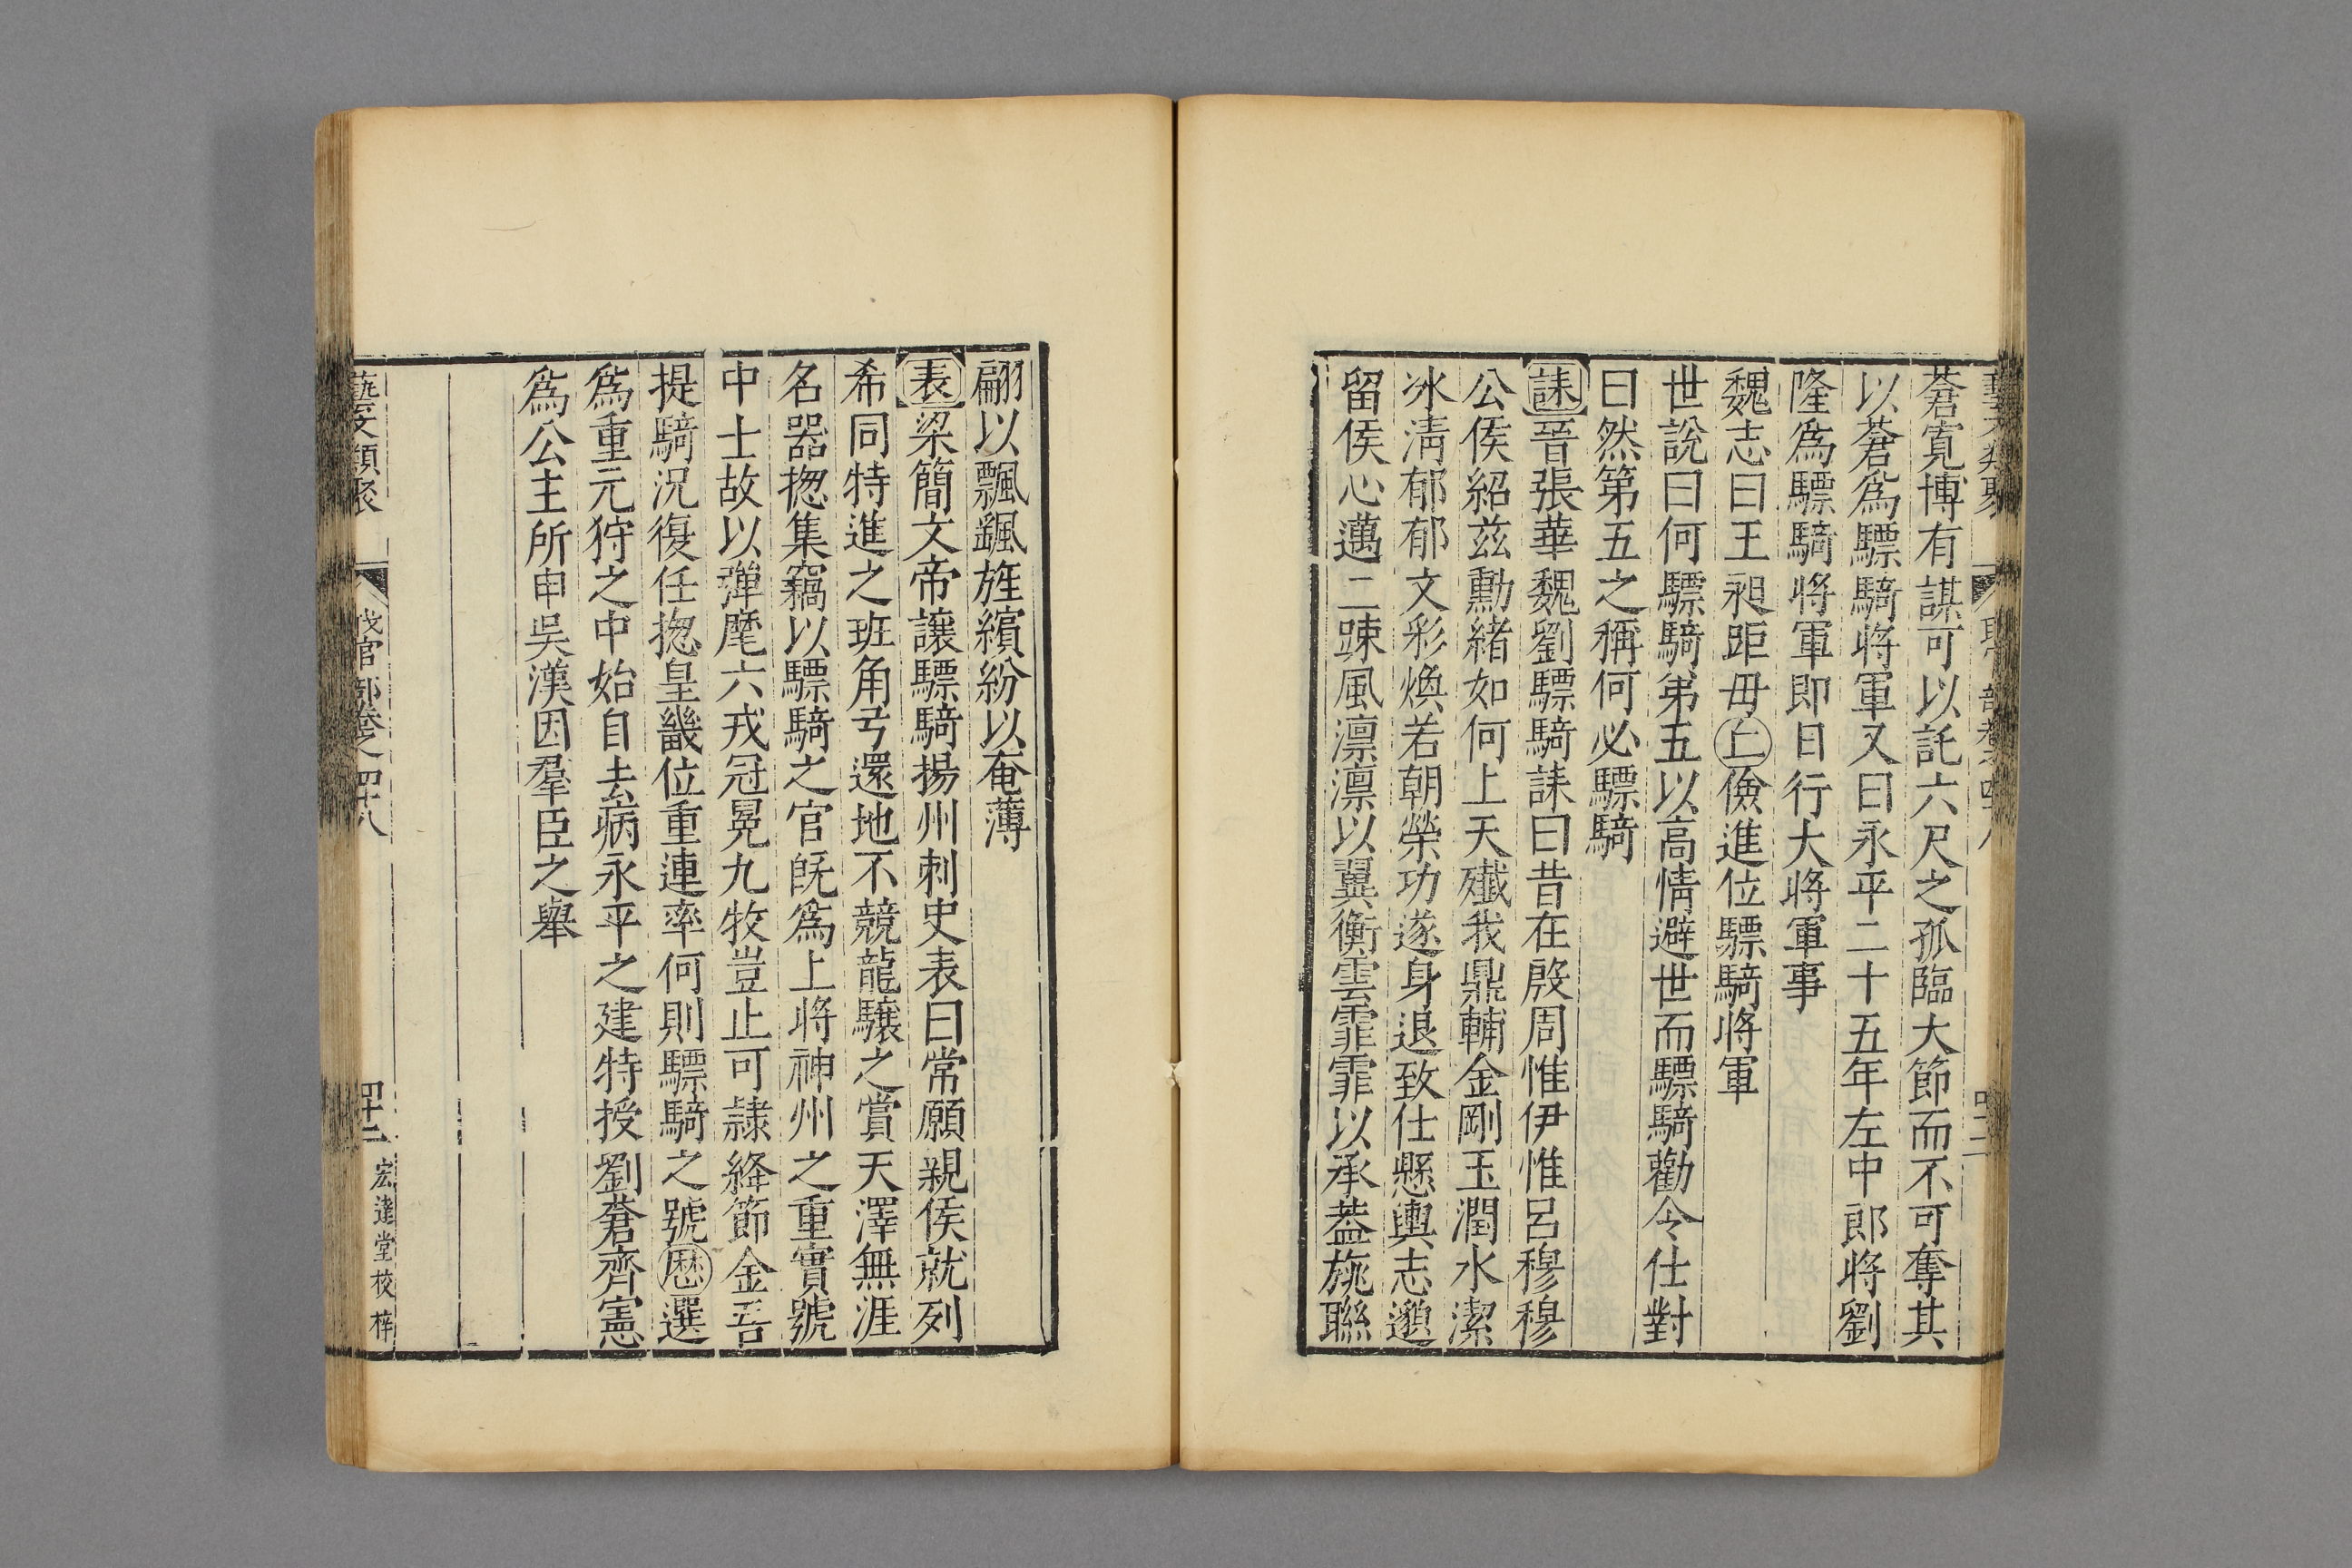 蒼寬博有謀可以託六尺之孤臨大節而不可奪其
以蒼爲驃騎將軍又曰永平二十五年左中郎將劉
隆爲驃騎將軍即日行大將軍事
魏志曰王昶距毋上儉進位驃騎將軍
世說曰何驃騎弟五以高情避世而驃騎勸令仕對
曰然第五之稱何必驃騎
誄晉張華魏劉驃騎誄曰昔在殷周惟伊惟呂穆穆
公侯紹茲勳緒如何上天殲我鼎輔金剛玉潤水潔
冰清郁郁文彩煥若朝榮功遂身退致仕懸輿志邈
留侯心邁二踈風凛凛以翼衡雲霏霏以承葢旐聯
翩以飄颻旌繽紛以奄薄
表梁簡文帝讓驃騎揚州刺史表曰常願親侯就列
希同特進之班角弓還地不競龍驤之賞天澤無涯
名器揔集竊以驃騎之官旣爲上將神州之重實號
中士故以彈麾六戎冠冕九牧豈止可隷絳節金吾
提騎況復任揔皇畿位重連率何則驃騎之號歷選
爲重元狩之中始自去病永平之建特授劉蒼齊憲
爲公主所申吳漢因羣臣之舉
藝文類聚
官部卷之四十八
四十二
宏達堂校梓